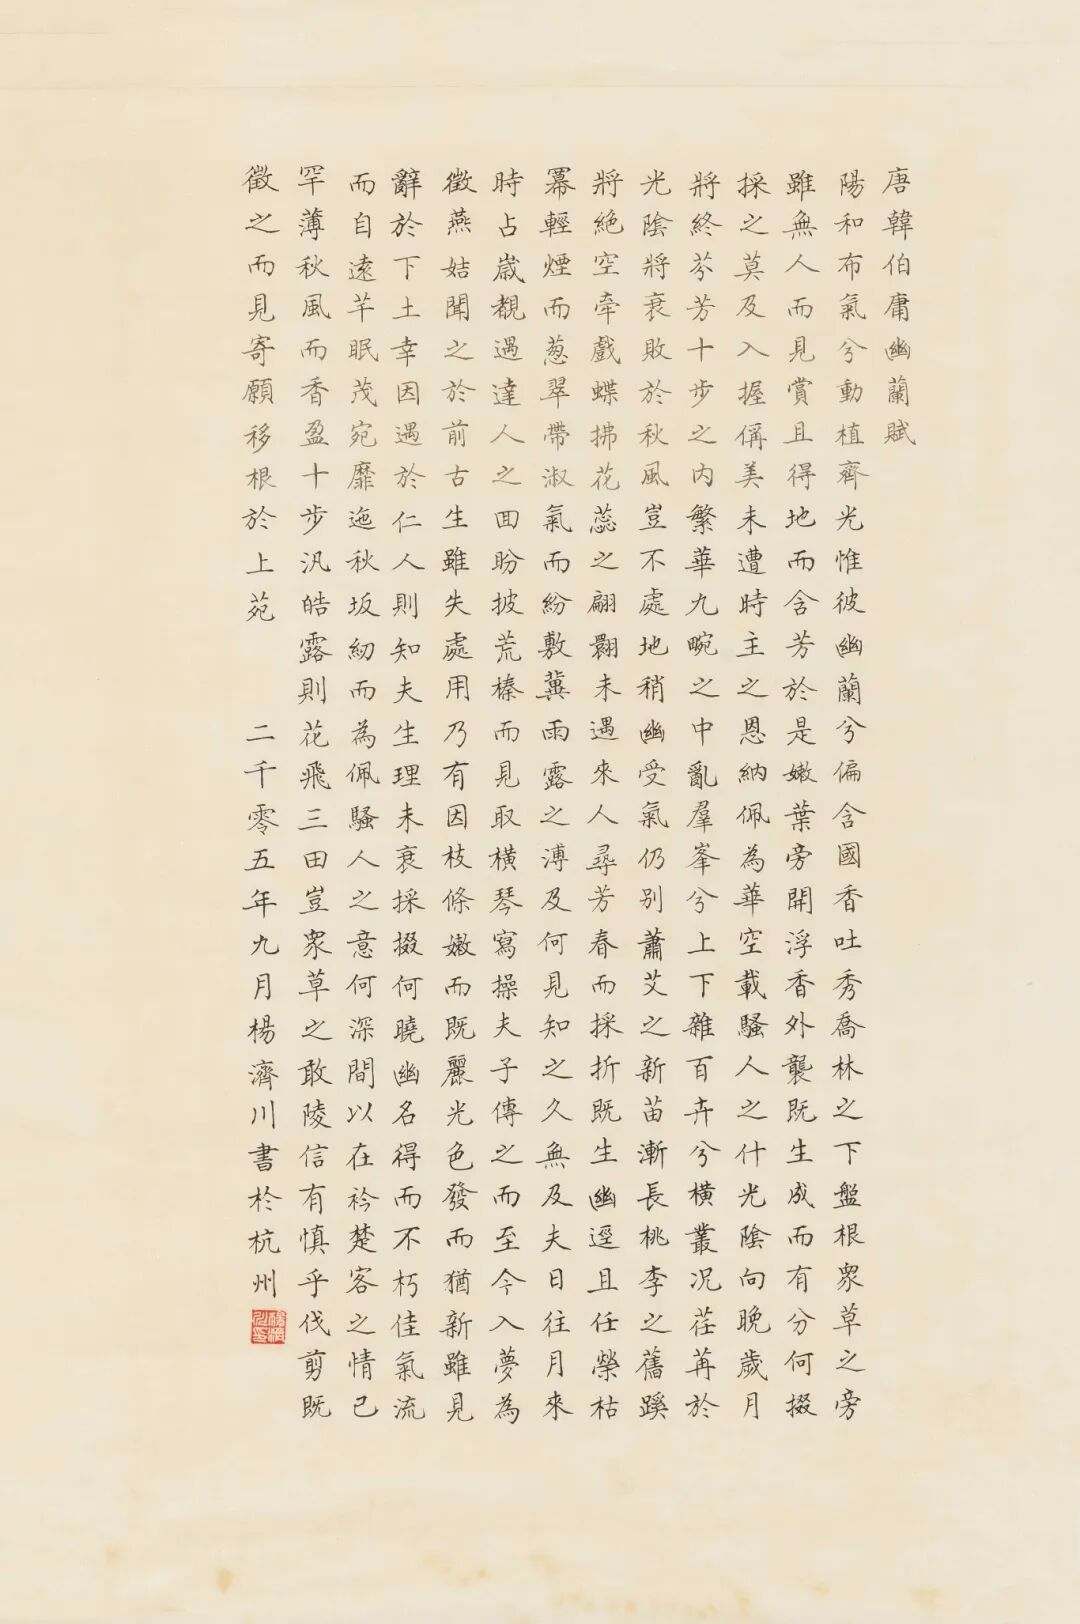 唐韓伯庸幽蘭賦
陽和布氣兮動植齊光惟彼幽蘭兮偏含國香吐秀喬林之下盤根眾草之旁
雖無人而見賞且得地而含芳於是嫩葉旁開浮香外襲既生成而有分何掇
採之莫及入握偁美未遭時主之恩納佩為華空載騷人之什光陰向晚歲月
將終芬芳十步之内繁華九畹之中亂羣峯兮上下雜百卉兮橫叢况荏苒於
光陰將衰敗於秋風豈不處地稍幽受氣仍别蕭艾之新苗漸長桃李之舊蹊
將絕空牽戲蝶拂花蕊之翩翾未遇來人尋芳春而採折既生幽逕且任榮枯
冪輕煙而葱翠帶淑氣而紛敷冀雨露之溥及何見知之久無及夫日往月來
時占歲覩遇達人之回盼披荒榛而見取橫琴寫操夫子傳之而至今入夢為
徵燕姞聞之於前古生雖失處用乃有因枝條嫩而既麗光色發而猶新雖見
辭於下土幸因遇於仁人則知夫生理未衰採掇何曉幽名得而不朽佳氣流
而自遠芊眠茂宛靡迤秋坂紉而為佩騷人之意何深間以在衿楚客之情已
罕薄秋風而香盈十步汎皓露則花飛三田豈眾草之敢陵信有慎乎伐剪既
徵之而見寄願移根於上苑
二千零五年九月楊濟川書於杭州